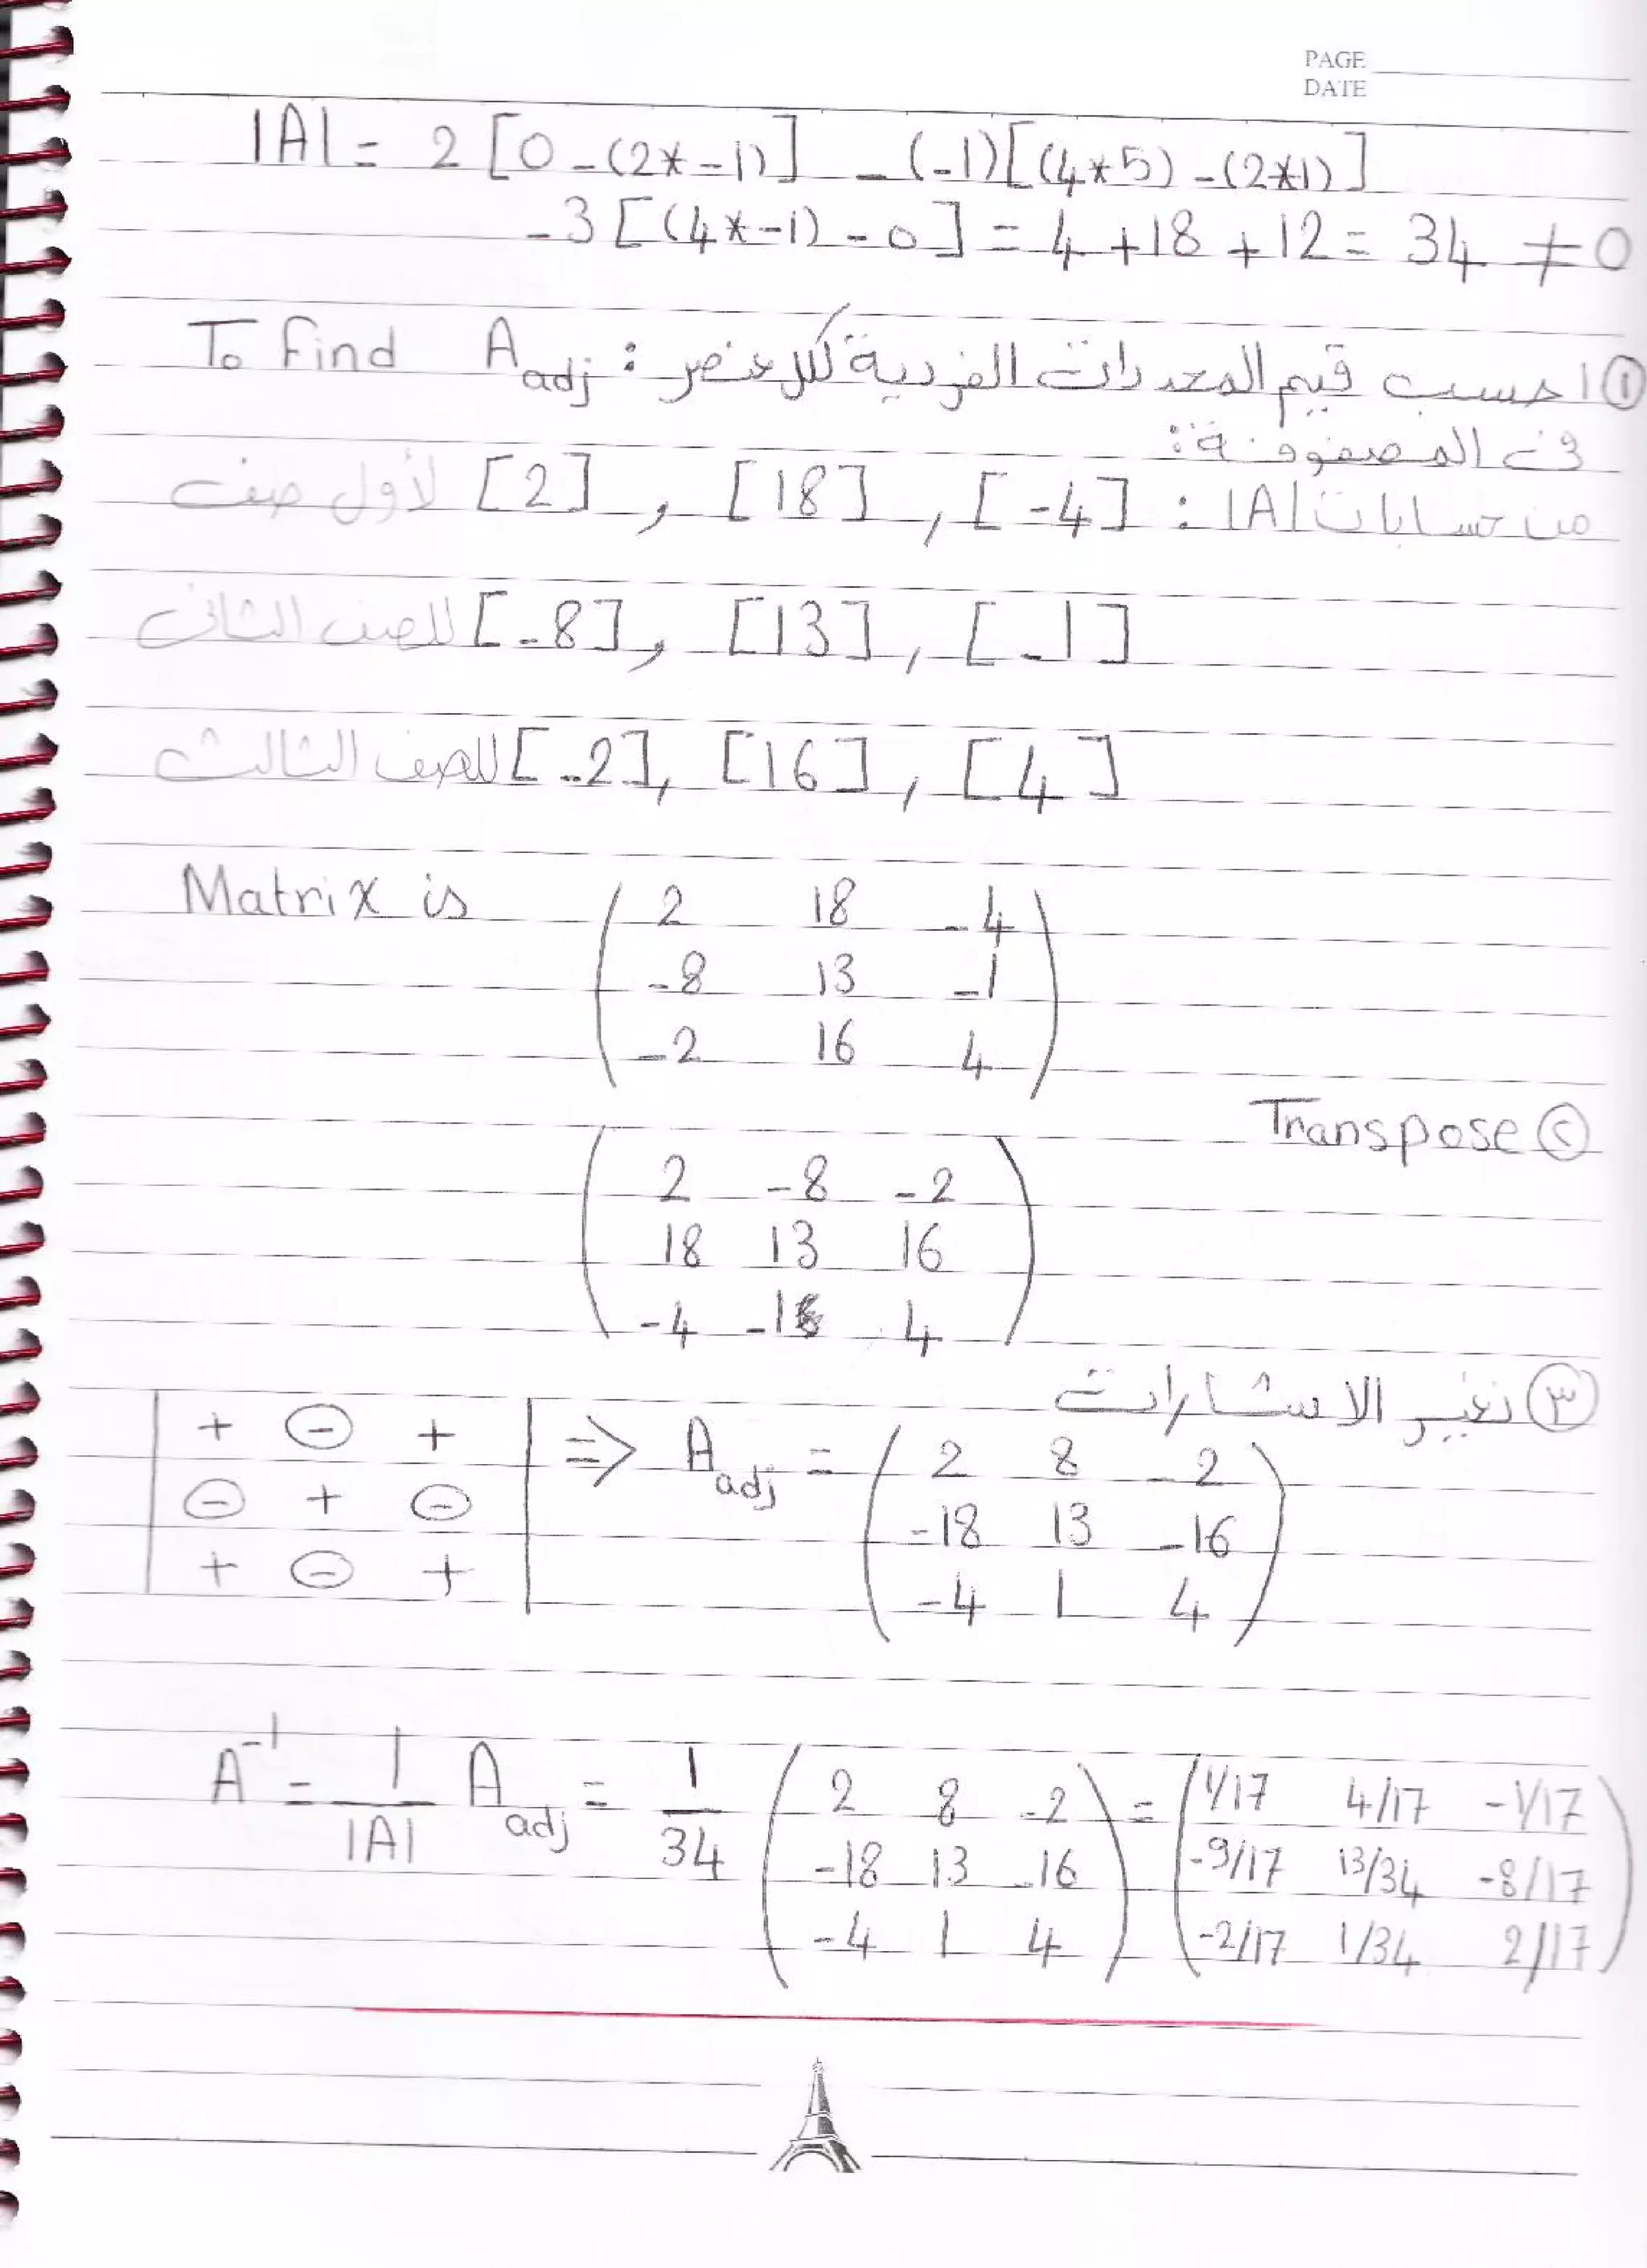 PAGE
DATE
|A| = 2 [0 -(2* -1)] - (-1)[(4*5) -(2*1)]
-3 [(4*-1) - 0] = 4 + 18 + 12 = 34 ≠ 0
To find A adj : ① احسب قيم المحددات الفردية لكل عنصر
فى المصفوفة:
من حسابات |A| : [2] , [18] , [-4] لأول صف
[-8] , [13] , [-1] للصف الثانى
[-2] , [16] , [4] للصف الثالث
Matrix is ( 2 18 -4
-8 13 -1
-2 16 4 )
② Transpose
( 2 -8 -2
18 13 16
-4 -1 4 )
③ نغير الاشارات
| + ⊖ + | ⇒ A adj = ( 2 8 -2
⊖ + ⊖ -18 13 -16
+ ⊖ + -4 1 4 )
A⁻¹ = 1/|A| A adj = 1/34 ( 2 8 -2 ) = ( 1/17 4/17 -1/17
-18 13 -16 -9/17 13/34 -8/17
-4 1 4 -2/17 1/34 2/17 )